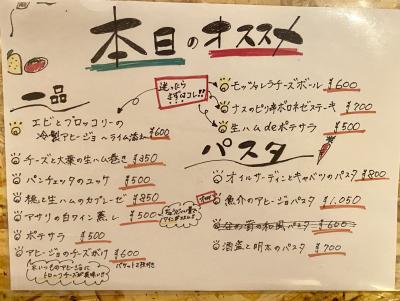 本日のオススメ
一品
迷ったら
まずはコレ!!
エビとブロッコリーの
冷製アヒージョ ~ライム添え ¥600
チーズと大葉の生ハム巻き ¥350
パンチェッタのユッケ ¥500
桃と生ハムのカプレーゼ ¥850
アサリの白ワイン蒸し ¥500
ポテサラ ¥500
アヒージョのチーズがけ ¥600
※いつものアヒージョに
トローフチーズが美味い!!
バゲット2枚付き
モッツァレラチーズボール ¥600
ナスのピリ辛ボロネーゼステーキ ¥700
生ハムdeポテサラ ¥500
パスタ
オイルサーディンとキャベツのパスタ ¥800
魚介のアヒージョパスタ ¥1,050
の和風パスタ ¥600
酒盗と明太のパスタ ¥700